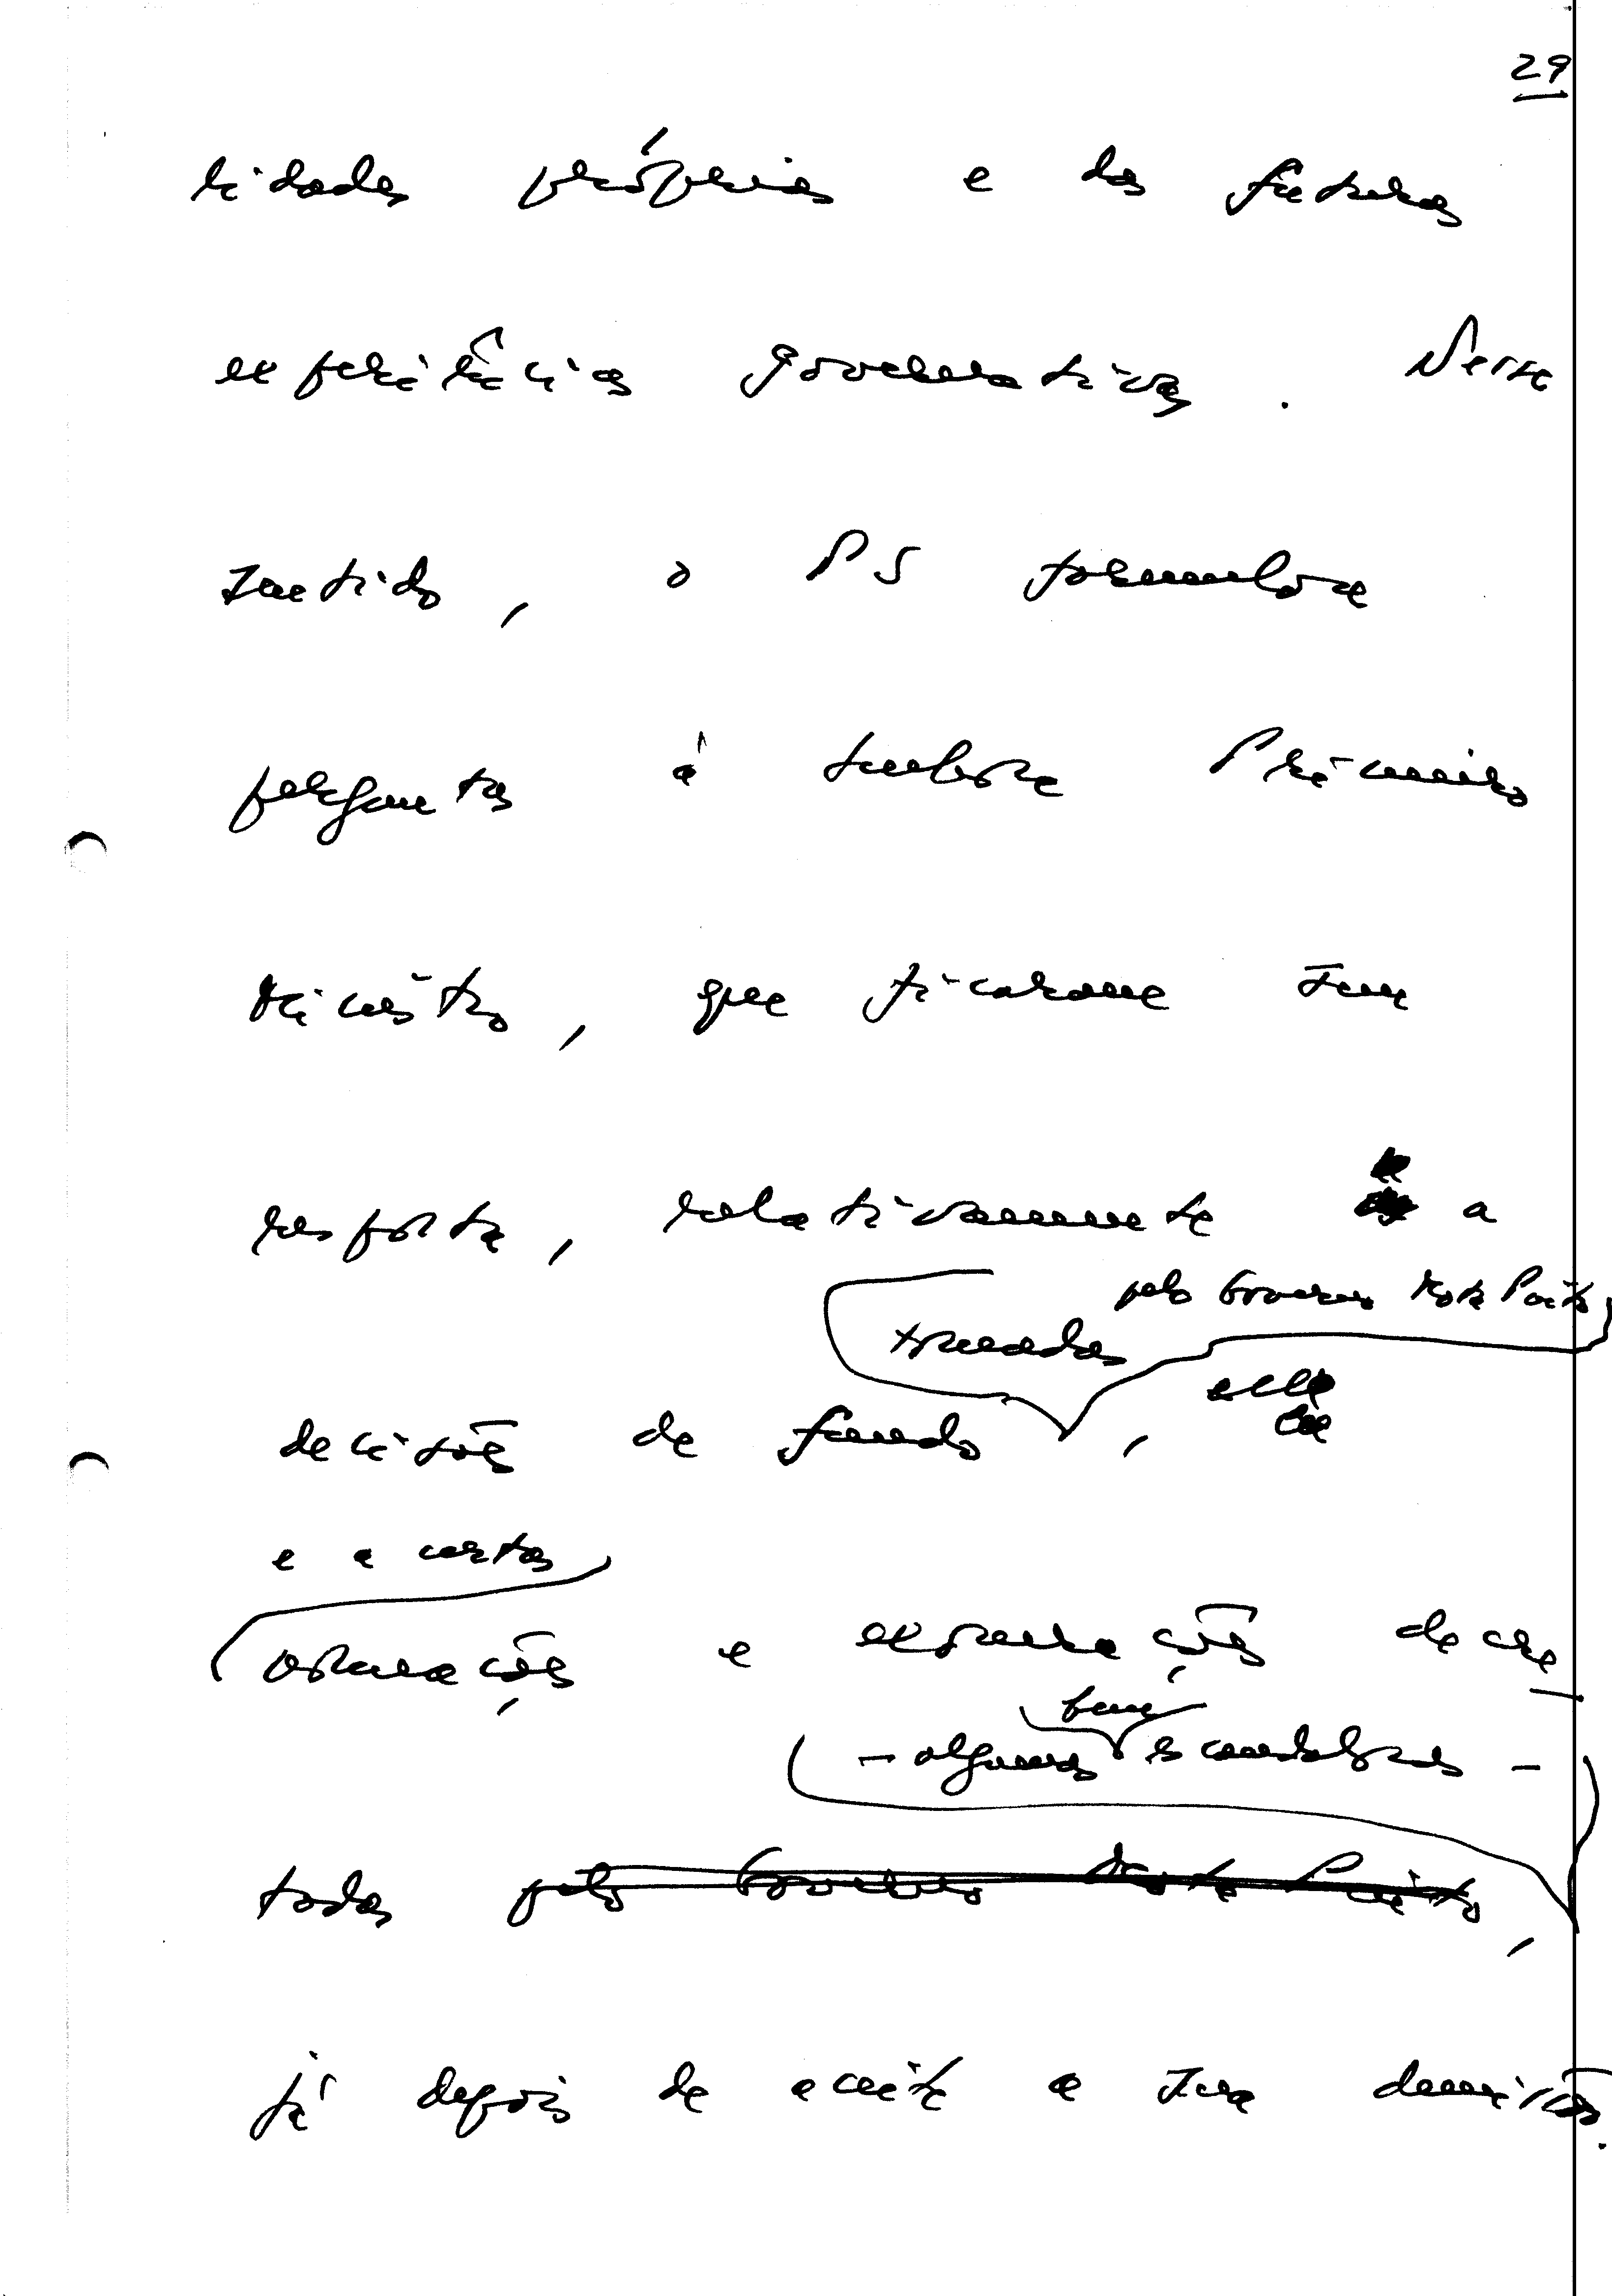 29
lidades próprias e das futuras
experiências governativas. Neste
sentido, o PS formulou
perguntas à senhora Primeiro
Ministro, que ficaram sem
resposta, relativamente a
pelo Governo Mota Pinto
tomadas
decisões de fundo,
e a certas
nomeações e exonerações decre
bem
- algumas escandalosas -
tadas pelo Governo Mota Pinto,
já depois de aceite a sua demissão.